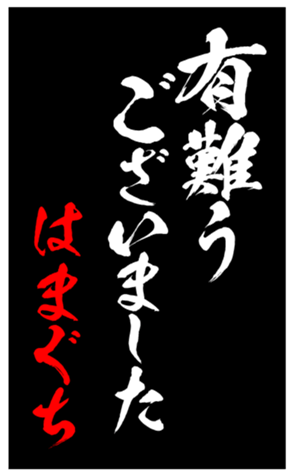 有難う
ございました
はまぐち